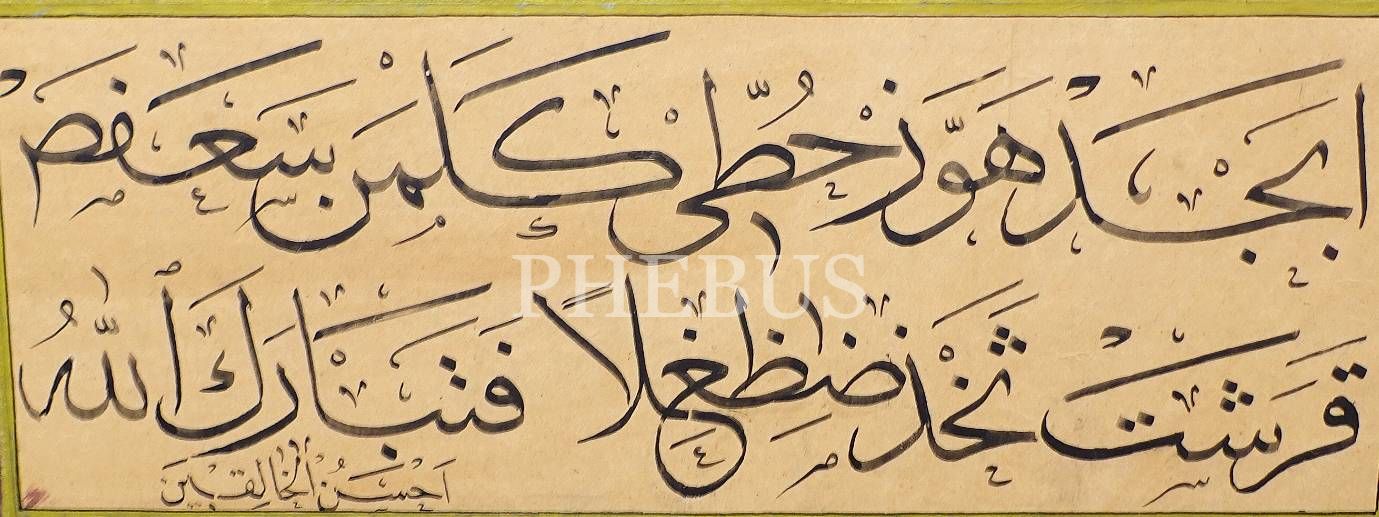 ابجد هوز حطى كلمن سعفص
قرشت ثخذ ضظغلا فتبارك الله
احسن الخالقين
PHEBUS